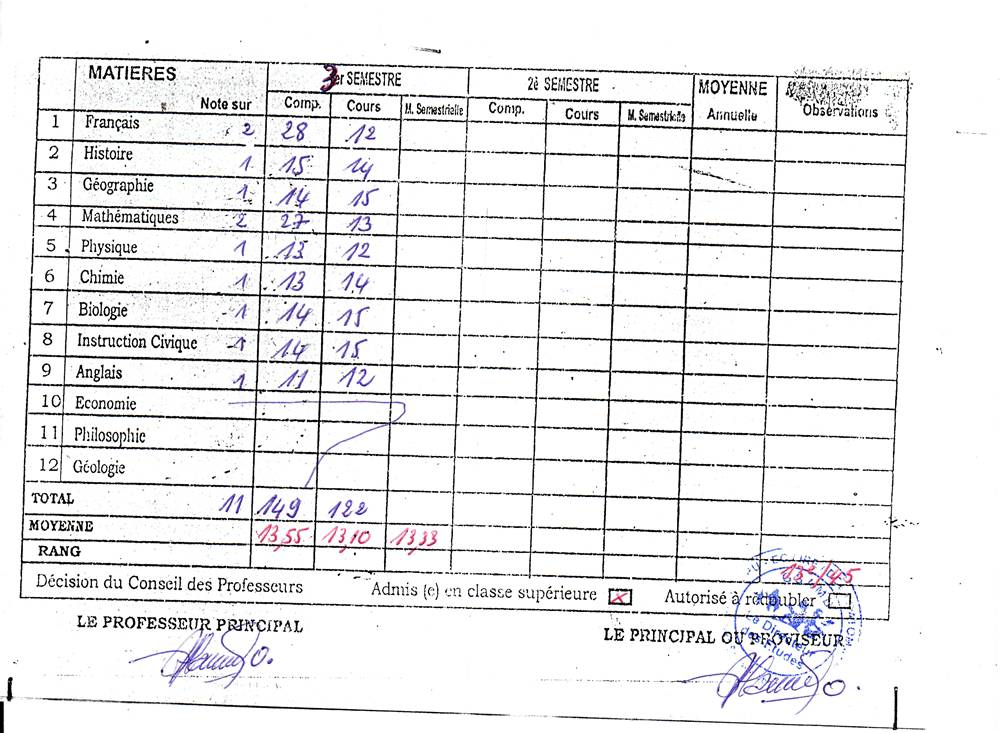 MATIERES 3er SEMESTRE 2è SEMESTRE MOYENNE
Note sur Comp. Cours M. Semestrielle Comp. Cours M. Semestrielle Annuelle Observations
1 Français 2 28 12
2 Histoire 1 15 14
3 Géographie 1 14 15
4 Mathématiques 2 27 13
5 Physique 1 13 12
6 Chimie 1 13 14
7 Biologie 1 14 15
8 Instruction Civique 1 14 15
9 Anglais 1 11 12
10 Economie
11 Philosophie
12 Géologie
TOTAL 11 149 122
MOYENNE 13,55 13,10 13,33
RANG
15e/45
Décision du Conseil des Professeurs Admis (e) en classe supérieure x Autorisé à redoubler
LE PROFESSEUR PRINCIPAL LE PRINCIPAL OU PROVISEUR
Le Directeur
des Etudes